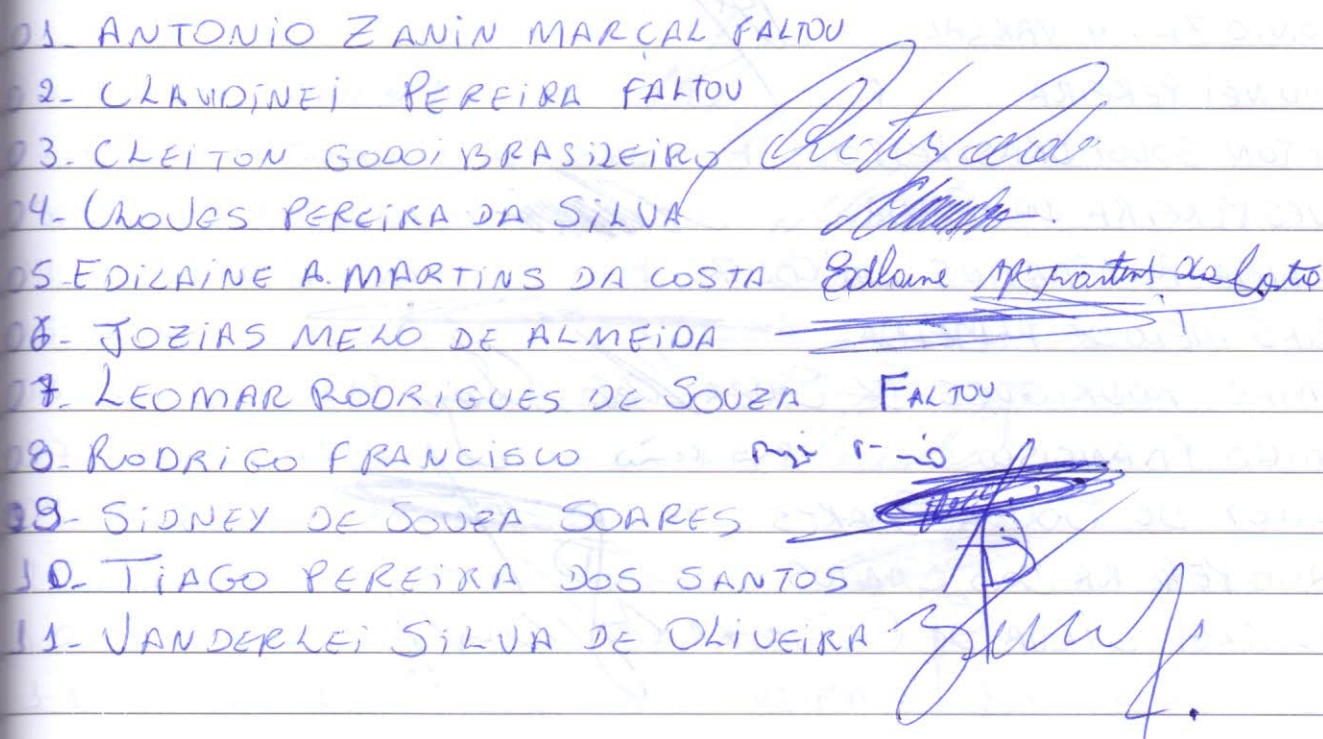 01- ANTONIO ZANIN MARÇAL FALTOU
02- CLAUDINEI PEREIRA FALTOU
03- CLEITON GODOI BRASILEIRO
04- CLOVES PEREIRA DA SILVA
05- EDILAINE A. MARTINS DA COSTA Edlaine AP Martins da Costa
06- JOZIAS MELO DE ALMEIDA
07- LEOMAR RODRIGUES DE SOUZA FALTOU
08- RODRIGO FRANCISCO
09- SIDNEY DE SOUZA SOARES
10- TIAGO PEREIRA DOS SANTOS
11- VANDERLEI SILVA DE OLIVEIRA